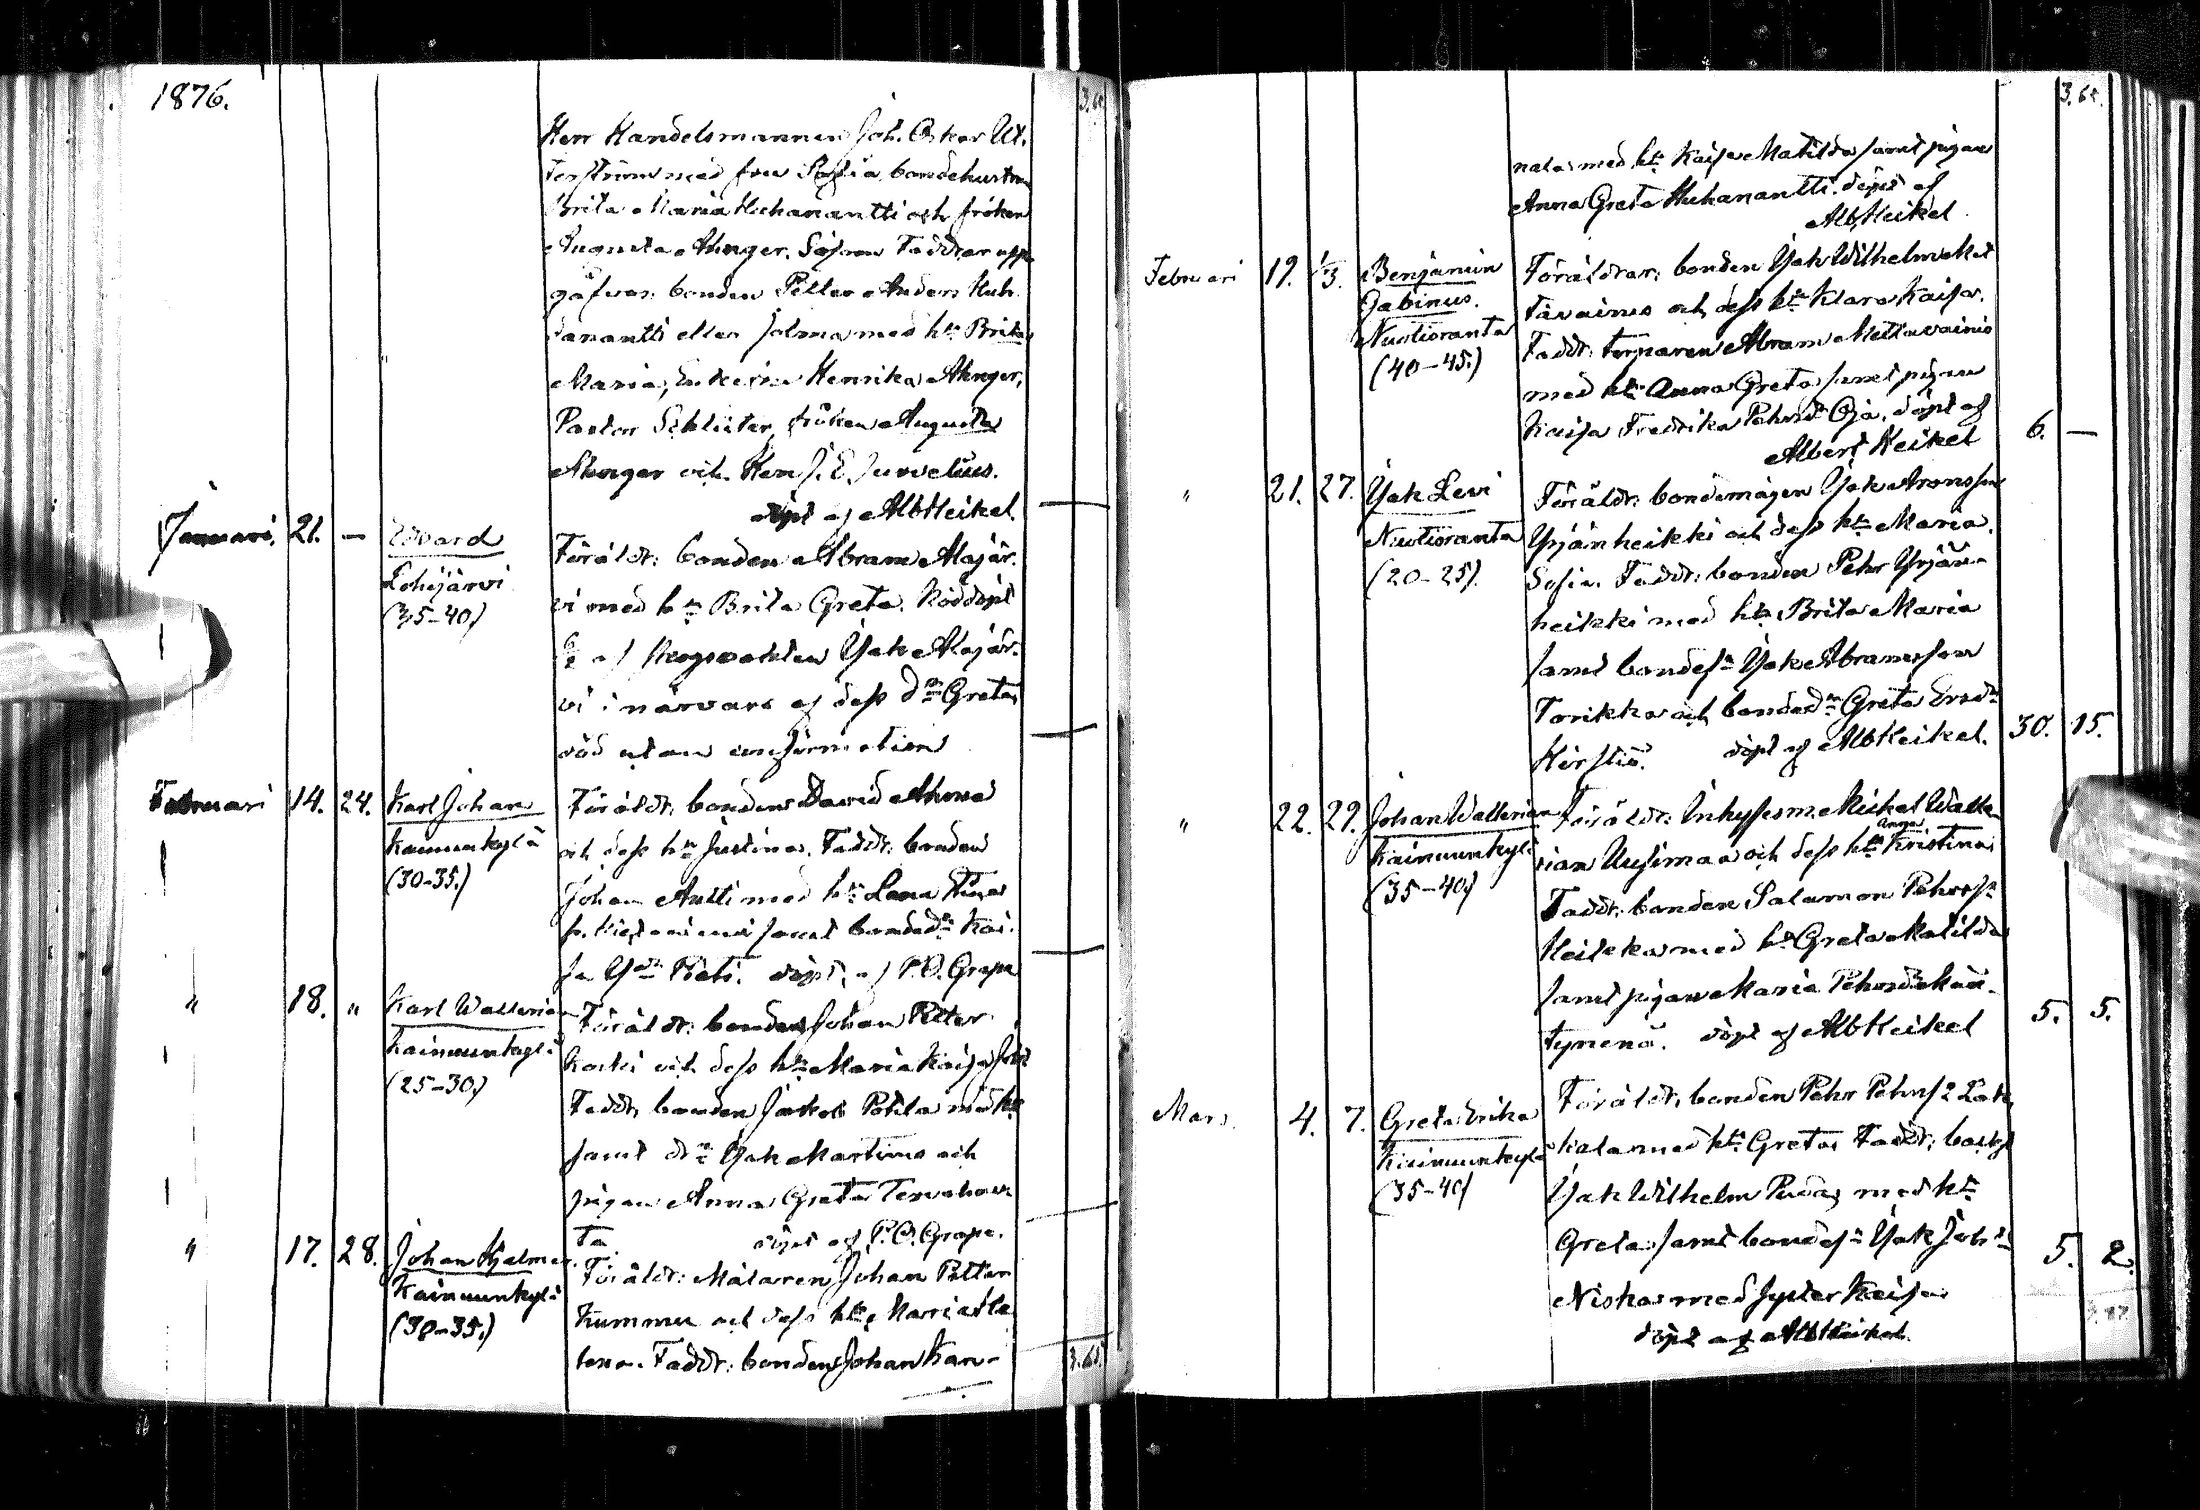 1876.
3.65
Herr Handelsmannen Joh. Oskar Ut-
terström med fru Sofia, bondehustrun
Brita Maria Huhanantti och fröken
Augusta Ahnger. Såsom Faddrar upp-
gåfvos: bonden Petter Anders Huh-
anantti eller Jolma med h:u Brita
Maria, Enkefru Henrika Ahnger,
Pastor Schlüter, fröken Augusta
Ahnger och Herr J. E. Jurvelius.
döpt af Alb Heikel.
Januari. 21. — Edvard
Lohijärvi
(35-40)
Föräldr: bonden Abram Alajär-
vi med h:u Brita Greta. Nöddöpt
af skogsvakten Isak Alajär-
vi i närvaro af dess d:r Greta
död utan confirmation
Februari 14. 24. Karl Johan
Kainuunkylä
(30-35.)
Föräldr: bonden David
och dess h:u Justina. Faddr: bonden
Johan Antti med h:u Lena
samt bonded:r Kai-
sa döpt af P.O. Grape
" 18. " Karl Wallerian
Kainuunkylä
(25-30)
Föräldr: bonden Johan Petter
Koski och dess h:u Maria Kaisa
Faddr: bonden Jakob med h:u
samt dr: Isak Martimo och
pigan Anna Greta Tervahau-
ta döpt af P.O. Grape.
" 17. 28. Johan Hjalmar.
Kainuunkylä
(30-35.)
Föräldr: Målaren Johan Petter
Kummu och dess h:u Maria He-
lena. Faddr: bonden Johan Kan-
3.65
3.65.
nala med h:u Kaisa Matilda samt pigan
Anna Greta Huhanantti. döpt af
Alb Heikel.
Februari 19. 1/3. Benjamin
Gabinus.
Nuotioranta
(40-45.)
Föräldrar: bonden Isak Wilhelm Met-
tävainio och dess h:u Klara Kaisa.
Faddr: torparen Abram Mettävainio
med h:u Anna Greta samt pigan
Kaisa Fredrika Pehrsd:r Oja. döpt af
Albert Heikel
6. —
" 21. 27. Isak Levi
Nuotioranta
(20-25).
Föräldr: bondemågen Isak Aronsson
Yrjänheikki och dess h:u Maria
Sofia. Faddr: bonden Pehr Yrjän-
heikki med h:u Brita Maria
samt bondes:n Isak Abramsson
Torikka och bonded:r Greta Ersd:r
Kerstiö. döpt af Alb Heikel.
30. 15.
" 22. 29. Johan Wallerian
Kainuunkylä
(35-40)
Föräldr: Inhysesm. Mickel Walle-
rian Uusimaa och dess h:u Anna Kristina
Faddr: bonden Salamon Pehrss:n
Keitikka med h:u Greta Matilda
samt pigan Maria Pehrsd:r Män-
tymenä. döpt af Alb Heikel
5. 5.
Mars. 4. 7. Greta Erika
Kainuunkylä
(35-40)
Föräldr: bonden Pehr Pehrss:n Lah-
kala med h:u Greta. Faddr:
Isak Wilhelm Pudas med h:u
Greta samt bondes:n Isak Joh:s
Niska med syster Kaisa
döpt af Alb Heikel.
5. 2.